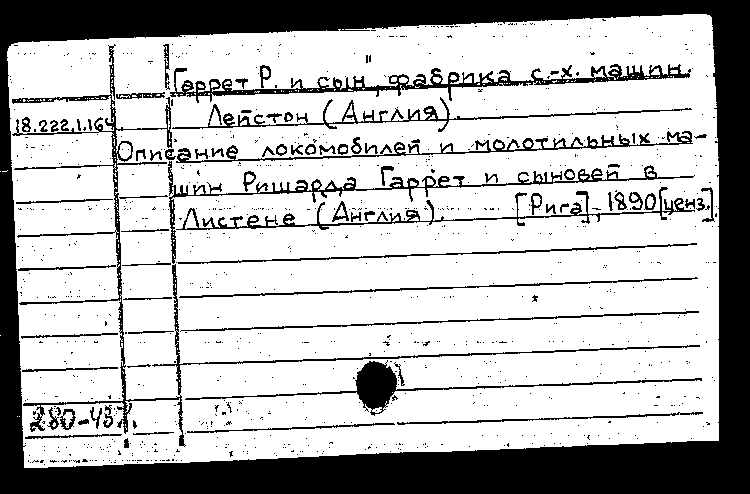 Гаррет Р. и сын", фабрика с.-х. машин.
18.222.1.164
Лейстон (Англия).
Описание локомобилей и молотильных ма-
шин Ришарда Гаррет и сыновей в
Листене (Англия). [Рига], 1890 [ценз.].
280-487.